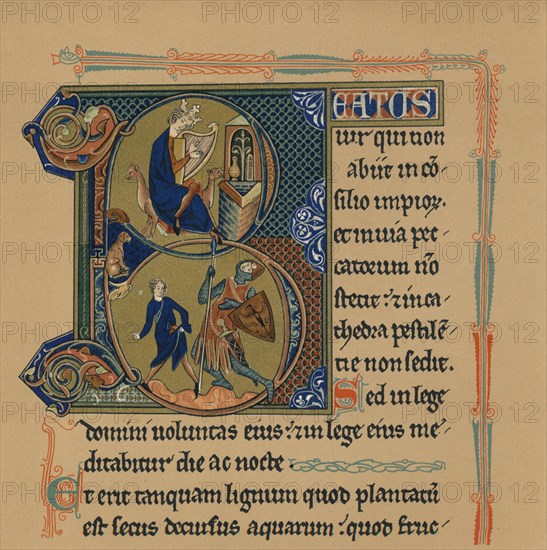 BEATUS
uir qui non
abiit in cõ-
silio impioꝝ.
et in uia pec-
catorum nõ
stetit ⁊ in ca-
thedra pestilẽ-
tie non sedit.
Sed in lege
domini uoluntas eius ⁊ in lege eius me-
ditabitur die ac nocte
Et erit tanquam lignum quod plantatũ
est secus decursus aquarum ⁊ quod fruc-
PHOTO 12